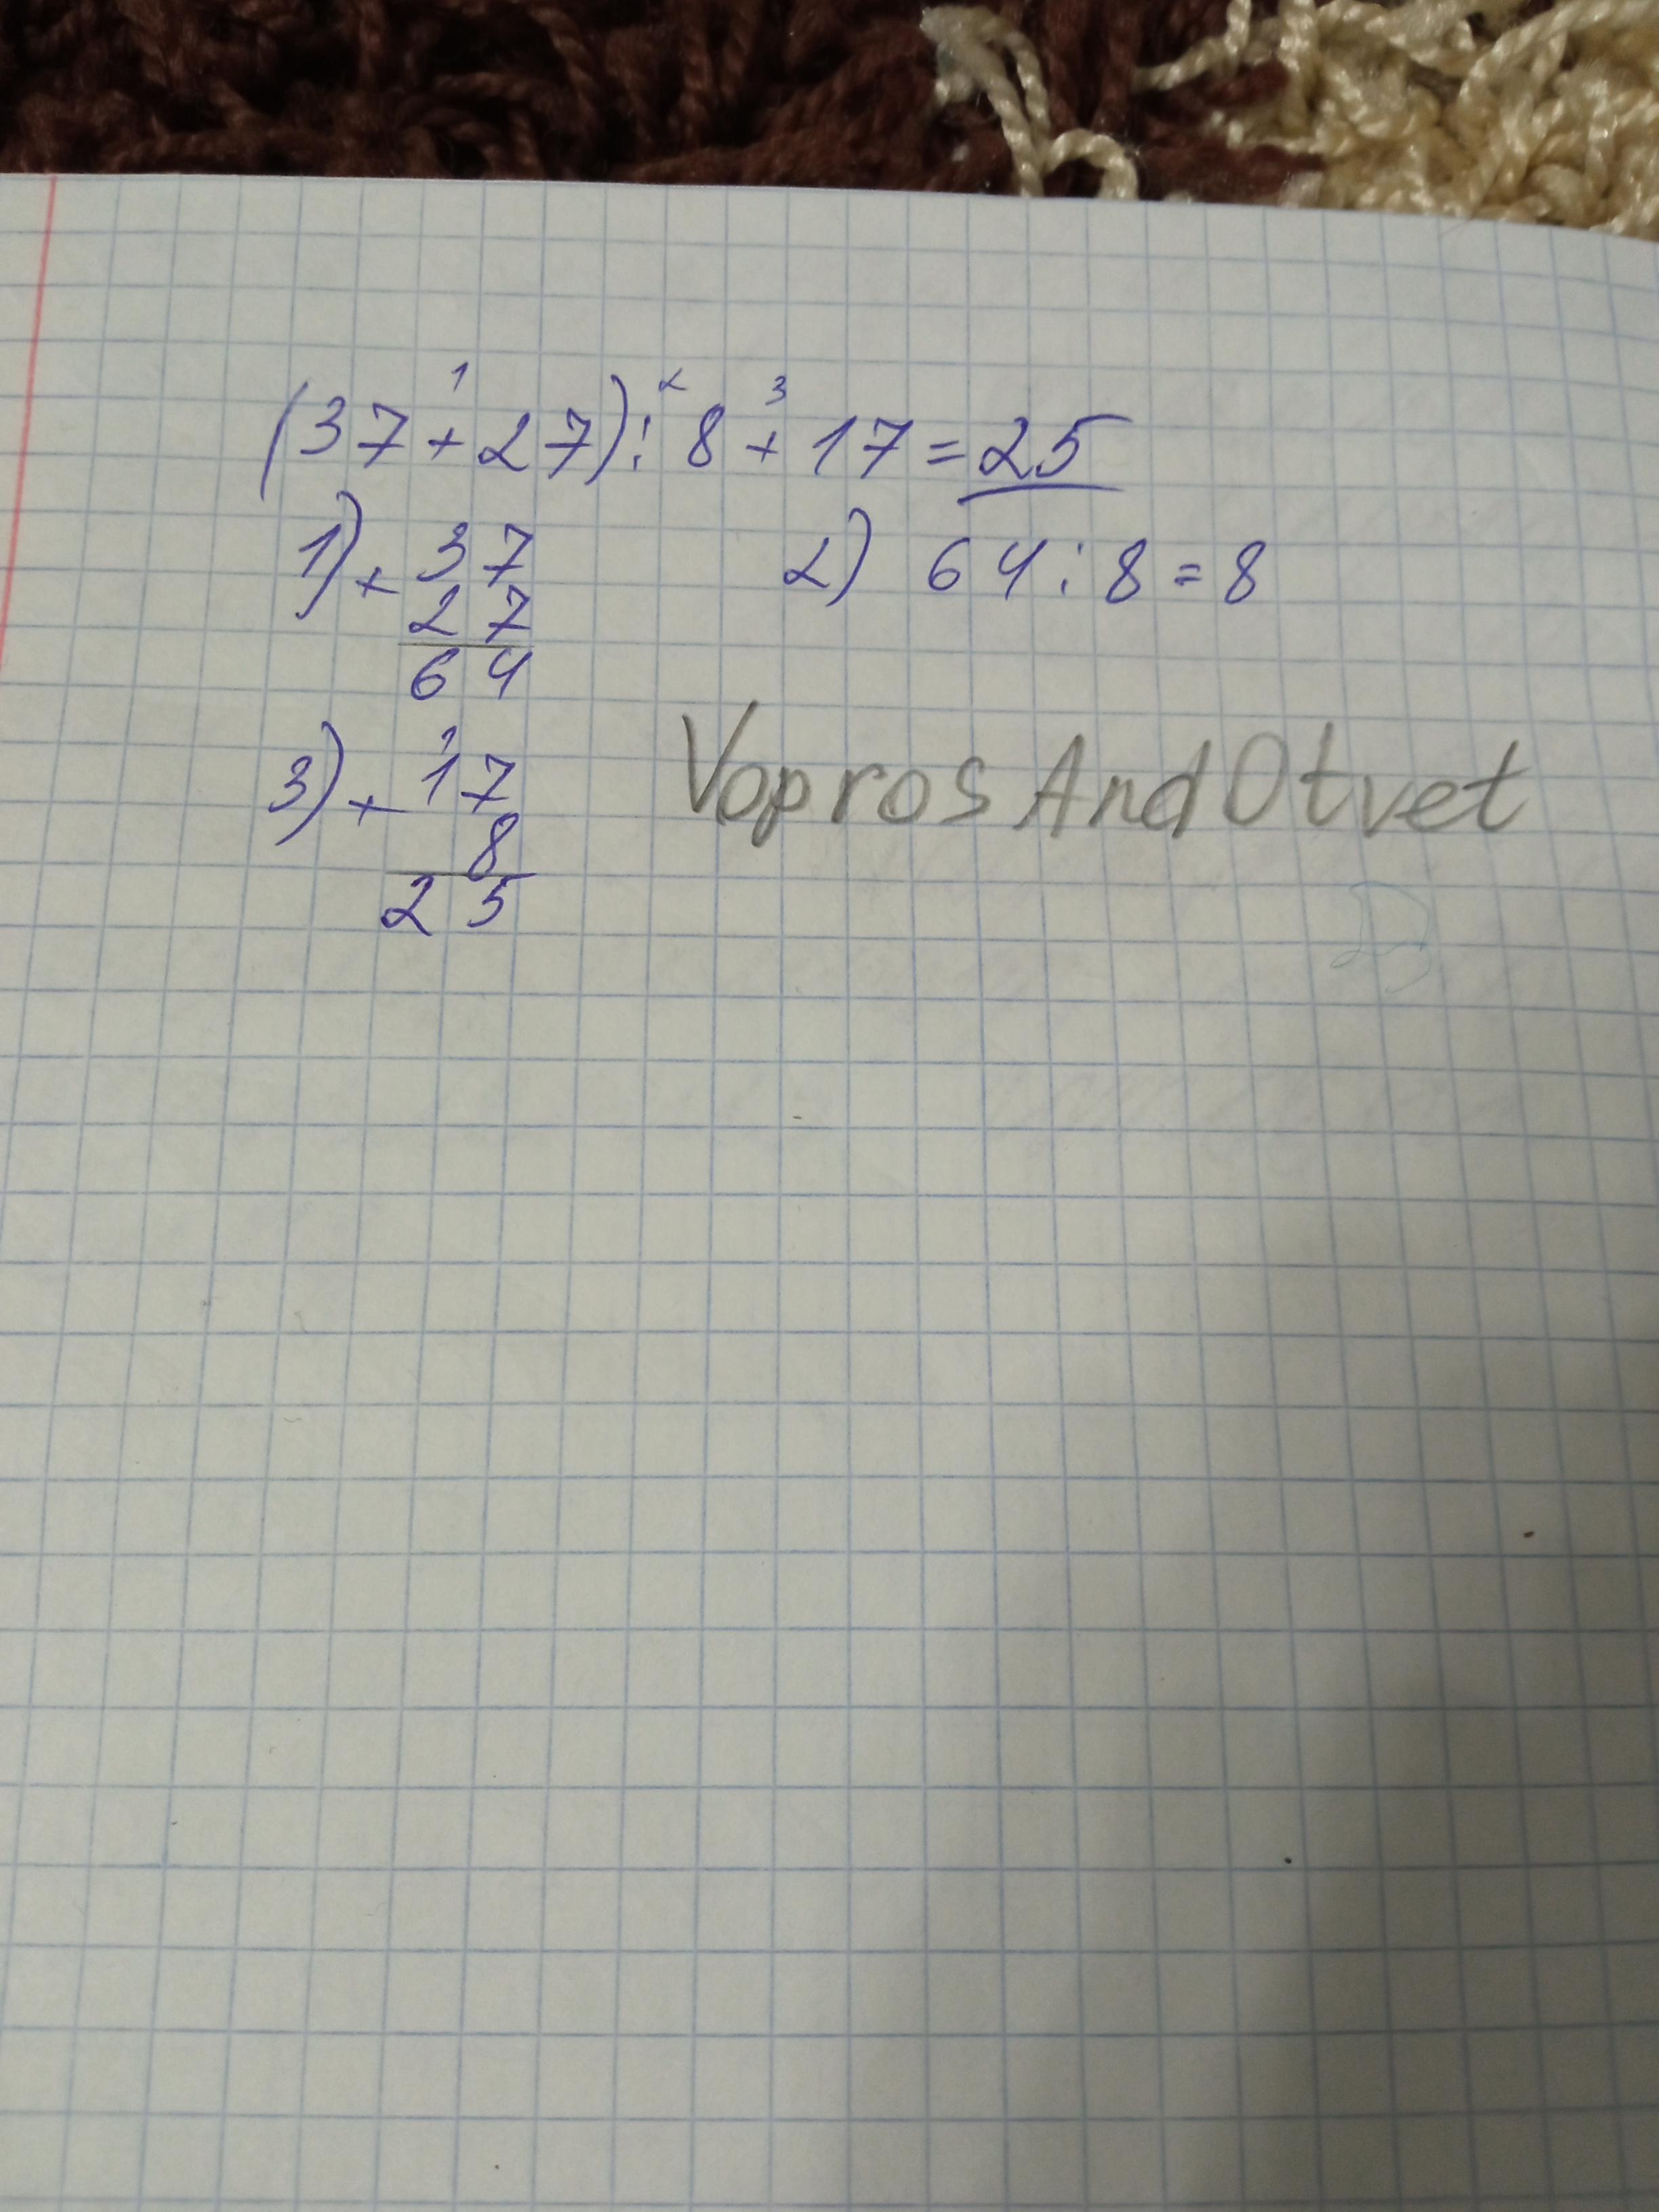 1 2 3
(37+27):8+17=25
1) + 37
27
64
2) 64:8=8
1
3) + 17
8
25
VoprosAndOtvet